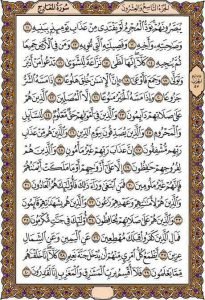 سُورَةُ المَعَارِجِ الجُزْءُ التَّاسِعُ وَالعِشْرُونَ
يُبَصَّرُونَهُمْ يَوَدُّ ٱلْمُجْرِمُ لَوْ يَفْتَدِى مِنْ عَذَابِ يَوْمِئِذٍۭ بِبَنِيهِ ١١
وَصَٰحِبَتِهِۦ وَأَخِيهِ ١٢ وَفَصِيلَتِهِ ٱلَّتِى تُـْٔوِيهِ ١٣ وَمَن فِى ٱلْأَرْضِ جَمِيعًا
ثُمَّ يُنجِيهِ ١٤ كَلَّآ إِنَّهَا لَظَىٰ ١٥ نَزَّاعَةً لِّلشَّوَىٰ ١٦ تَدْعُوا۟ مَنْ أَدْبَرَ
وَتَوَلَّىٰ ١٧ وَجَمَعَ فَأَوْعَىٰٓ ١٨ إِنَّ ٱلْإِنسَٰنَ خُلِقَ هَلُوعًا ١٩ إِذَا مَسَّهُ ٱلشَّرُّ
جَزُوعًا ٢٠ وَإِذَا مَسَّهُ ٱلْخَيْرُ مَنُوعًا ٢١ إِلَّا ٱلْمُصَلِّينَ ٢٢ ٱلَّذِينَ هُمْ
عَلَىٰ صَلَاتِهِمْ دَآئِمُونَ ٢٣ وَٱلَّذِينَ فِىٓ أَمْوَٰلِهِمْ حَقٌّ مَّعْلُومٌ ٢٤ لِّلسَّآئِلِ
وَٱلْمَحْرُومِ ٢٥ وَٱلَّذِينَ يُصَدِّقُونَ بِيَوْمِ ٱلدِّينِ ٢٦ وَٱلَّذِينَ هُم مِّنْ عَذَابِ
رَبِّهِم مُّشْفِقُونَ ٢٧ إِنَّ عَذَابَ رَبِّهِمْ غَيْرُ مَأْمُونٍ ٢٨ وَٱلَّذِينَ هُمْ
لِفُرُوجِهِمْ حَٰفِظُونَ ٢٩ إِلَّا عَلَىٰٓ أَزْوَٰجِهِمْ أَوْ مَا مَلَكَتْ أَيْمَٰنُهُمْ فَإِنَّهُمْ
غَيْرُ مَلُومِينَ ٣٠ فَمَنِ ٱبْتَغَىٰ وَرَآءَ ذَٰلِكَ فَأُو۟لَٰٓئِكَ هُمُ ٱلْعَادُونَ ٣١
وَٱلَّذِينَ هُمْ لِأَمَٰنَٰتِهِمْ وَعَهْدِهِمْ رَٰعُونَ ٣٢ وَٱلَّذِينَ هُم بِشَهَٰدَٰتِهِمْ قَآئِمُونَ ٣٣
وَٱلَّذِينَ هُمْ عَلَىٰ صَلَاتِهِمْ يُحَافِظُونَ ٣٤ أُو۟لَٰٓئِكَ فِى جَنَّٰتٍ مُّكْرَمُونَ ٣٥
فَمَالِ ٱلَّذِينَ كَفَرُوا۟ قِبَلَكَ مُهْطِعِينَ ٣٦ عَنِ ٱلْيَمِينِ وَعَنِ ٱلشِّمَالِ
عِزِينَ ٣٧ أَيَطْمَعُ كُلُّ ٱمْرِئٍ مِّنْهُمْ أَن يُدْخَلَ جَنَّةَ نَعِيمٍ ٣٨ كَلَّآ إِنَّا خَلَقْنَٰهُم
مِّمَّا يَعْلَمُونَ ٣٩ فَلَآ أُقْسِمُ بِرَبِّ ٱلْمَشَٰرِقِ وَٱلْمَغَٰرِبِ إِنَّا لَقَٰدِرُونَ ٤٠